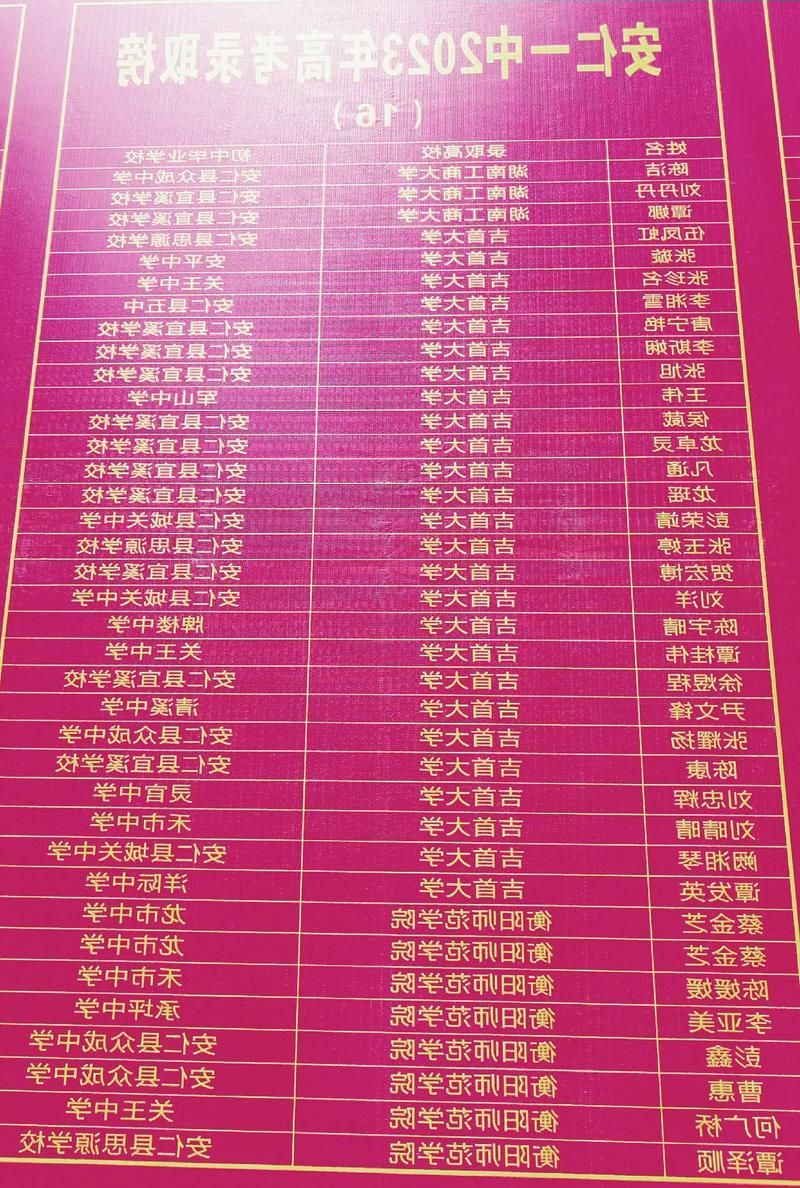 安仁一中2023年高考录取榜
（16）
姓名 录取高校 初中毕业学校
陈洁 湖南工商大学 安仁县众成中学
刘丹丹 湖南工商大学 安仁县宜溪学校
谭娜 湖南工商大学 安仁县宜溪学校
伍凤虹 吉首大学 安仁县思源学校
张璇 吉首大学 安平中学
张珍名 吉首大学 关王中学
李湘雪 吉首大学 安仁县五中
唐宁艳 吉首大学 安仁县宜溪学校
李斯娴 吉首大学 安仁县宜溪学校
张旭 吉首大学 安仁县宜溪学校
王伟 吉首大学 军山中学
侯葳 吉首大学 安仁县宜溪学校
龙卓灵 吉首大学 安仁县宜溪学校
凡通 吉首大学 安仁县宜溪学校
龙瑶 吉首大学 安仁县宜溪学校
彭荣靖 吉首大学 安仁县城关中学
张玉婷 吉首大学 安仁县思源学校
贺宏博 吉首大学 安仁县宜溪学校
刘洋 吉首大学 安仁县城关中学
陈宇晴 吉首大学 牌楼中学
谭桂伟 吉首大学 关王中学
徐煜程 吉首大学 安仁县宜溪学校
尹文锋 吉首大学 清溪中学
张耀扬 吉首大学 安仁县众成中学
陈康 吉首大学 安仁县宜溪学校
刘忠辉 吉首大学 灵官中学
刘晴晴 吉首大学 禾市中学
阙湘琴 吉首大学 安仁县城关中学
谭发英 吉首大学 洋际中学
蔡金芝 衡阳师范学院 龙市中学
蔡金芝 衡阳师范学院 龙市中学
陈媛媛 衡阳师范学院 禾市中学
李亚美 衡阳师范学院 承坪中学
彭鑫 衡阳师范学院 安仁县众成中学
曹惠 衡阳师范学院 安仁县众成中学
何广桥 衡阳师范学院 关王中学
谭泽顺 衡阳师范学院 安仁县思源学校